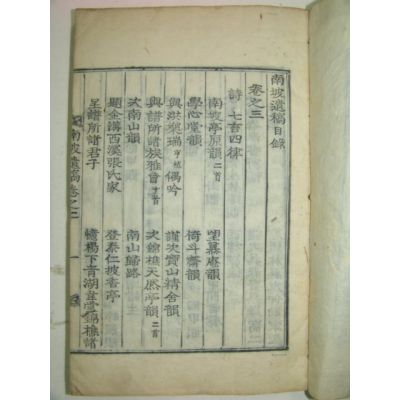 南坡遺稿目錄
卷之三
詩 七言四律
南坡亭原韻二首 望慕庵韻
學心堂韻 倚斗齋韻
與洪 瑞 偶吟 謹次寶山精舍韻
與譜所諸族雅會十首 次錦樵天 亭韻二首
次南山韻 南山歸路
題金溝西溪張氏家 登泰仁披香亭
呈譜所諸君子 憶楊下青湖 堂錦樵諸
南坡遺稿卷之三 一